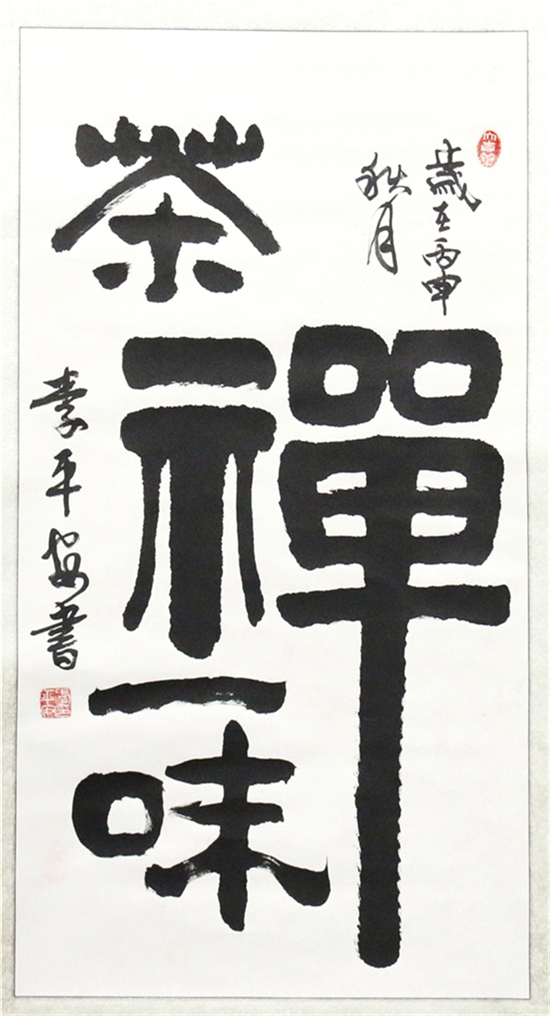 歲在丙申
秋月
茶
禪
一
味
李平安書